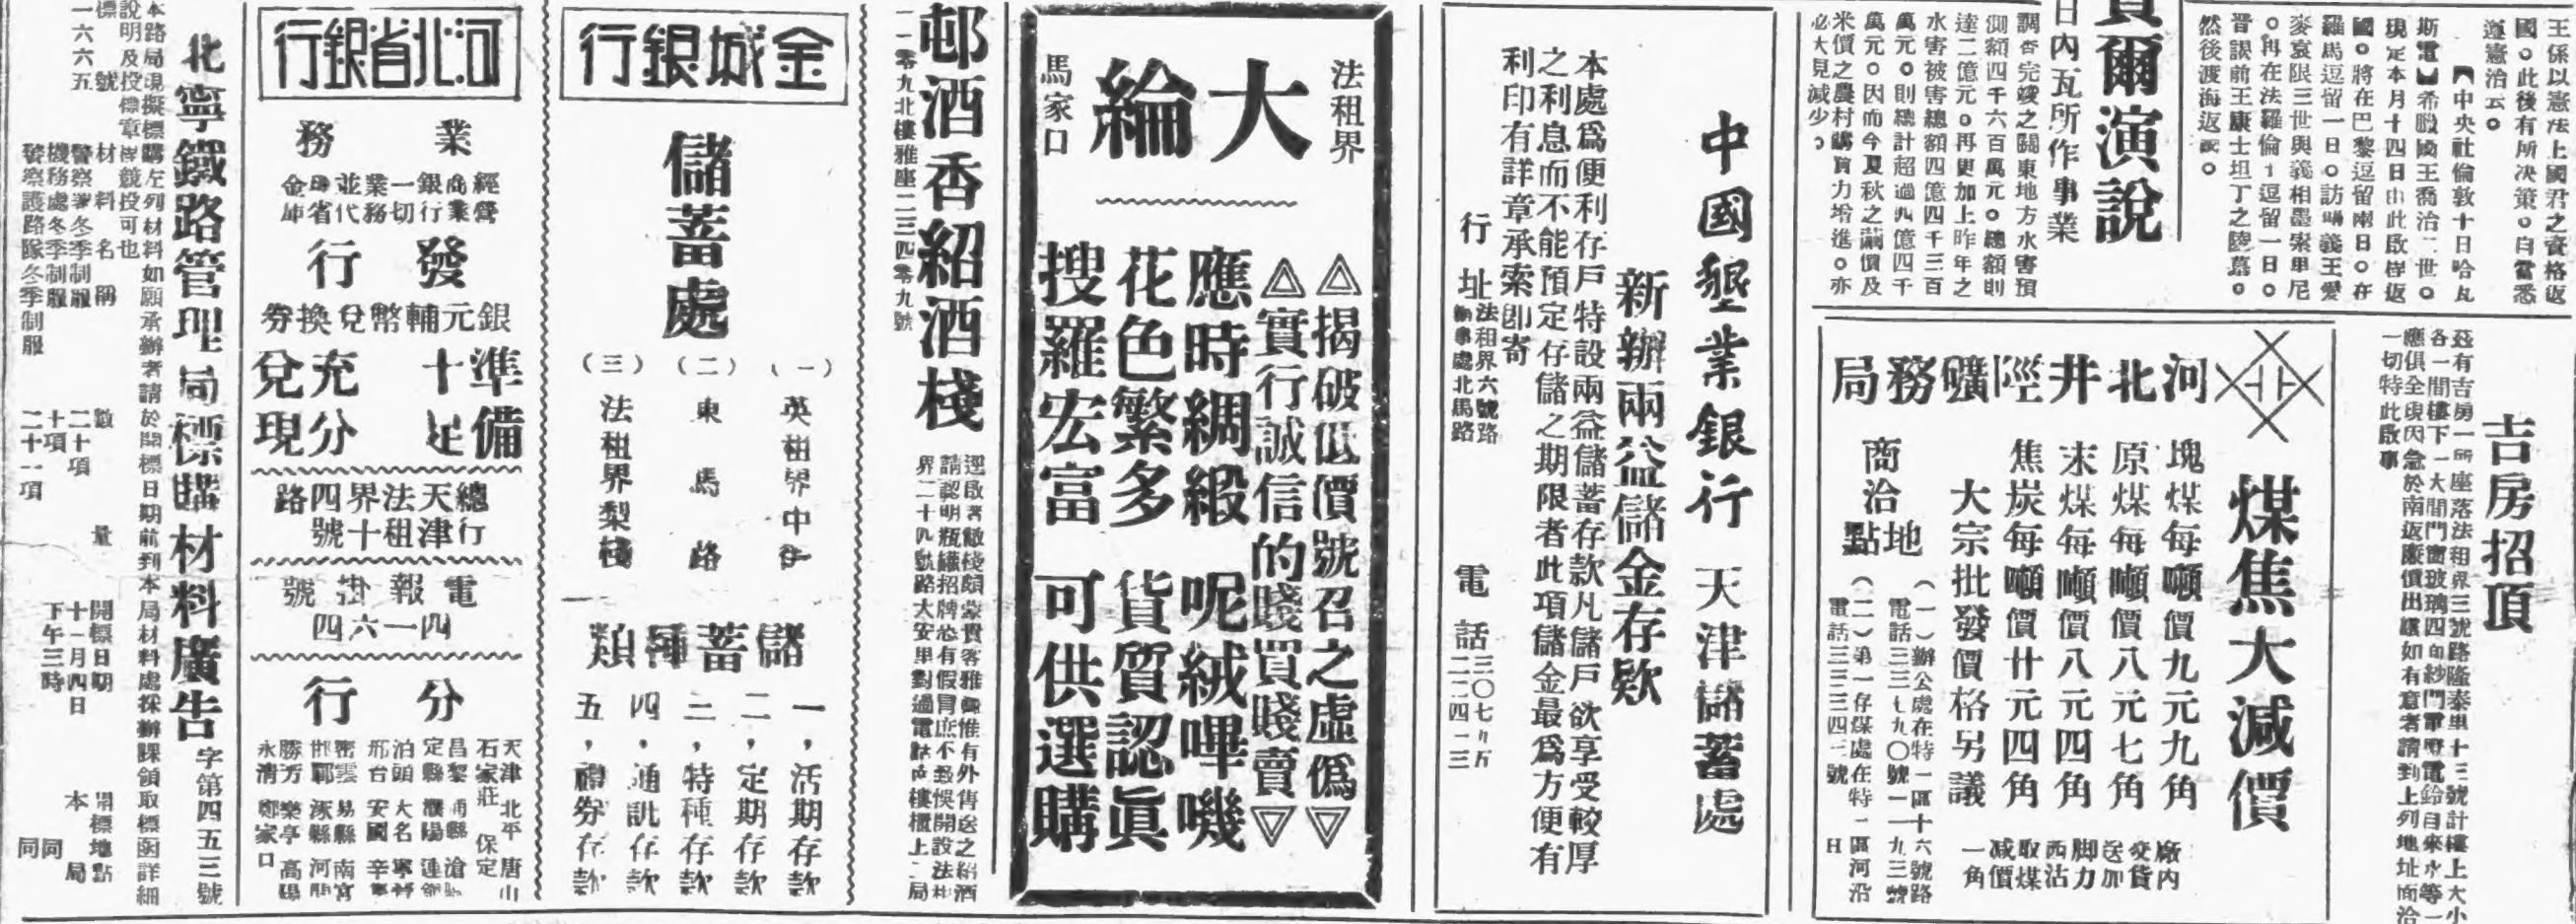 王係以憲法上國君之資格返
國。此後有所決策。自當悉
遵憲治云。
【中央社倫敦十日哈瓦
斯電】希臘國王喬治二世。
現定本月十四日由此啟程返
國。將在巴黎逗留兩日。在
羅馬逗留一日。訪晤義王愛
麥哀限三世與義相墨索里尼
。再在法羅倫1逗留一日。
晉謨前王康士坦丁之陵墓。
然後渡海返國。
賀爾演說
日內瓦所作事業
調查完竣之關東地方水害預
測額四千六百萬元。總額則
達二億元。再更加上昨年之
水害被害總額四億四千三百
萬元。則總計超過六億四千
萬元。因而今夏秋之繭價及
米價之農村購買力增進。亦
必大見減少。
吉房招頂
茲有吉房一所座落法租界三號路隆泰里十三號計樓上大小
各一間樓下一大間門窗玻璃四面紗門電燈電鈴自來水等一
應俱全現因急於南返廉價出讓如有意者請到上列地址面洽
一切特此啟事
煤焦大減價
河北井陘礦務局
塊煤每噸價九元九角
原煤每噸價八元七角
末煤每噸價八元四角
焦炭每噸價廿元四角
大宗批發價格另議
廠內
交貨
送加
脚力
西沽
取煤
減價
一角
商洽
地點
(一)辦公處在特一區十六號路
電話三三七九〇號一一九三號
(二)第一存煤處在特一區河沿
電話三三三四三號
中國墾業銀行 天津儲蓄處
新辦兩益儲金存欵
本處爲便利存戶特設兩益儲蓄存款凡儲戶欲享受較厚
之利息而不能預定存儲之期限者此項儲金最爲方便有
利印有詳章承索卽寄
行址 法租界六號路
辦事處北馬路
電話 三〇七九五
二二四一三
法租界
大綸
馬家口
△揭破低價號召之虛僞▽
△實行誠信的賤買賤賣▽
應時綢緞 呢絨嗶嘰
花色繁多 貨質認眞
搜羅宏富 可供選購
邨酒香紹酒棧
一一零九北樓雅座二三四零九號
逕啟者敝棧頗蒙貴客雅顧惟有外售送之紹酒
請認明瓶罐招牌恐有假冒庶不致悞開設法租
界二十四號路大安里對過電話南樓櫃上二局
金城銀行
儲蓄處
(一) 英租界中街
(二) 東馬路
(三) 法租界梨棧
儲蓄種類
一，活期存款
二，定期存款
三，特種存款
四，通訊存款
五，禮券存款
河北省銀行
業務
經營
商業
銀行
一切
業務
並代
理省
金庫
發行
銀元輔幣兌換券
準備
十足
充分
兌現
總行
天津
法租
界十
四號
路
電報掛號
四一六四
分行
天津 北平 唐山
石家莊 保定
昌黎 通縣 滄縣
定縣 濮陽
泊頭 大名
邢台 安國
密雲 易縣 南宮
邯鄲 涿縣 河間
勝芳 樂亭 高陽
永清 鄭家口
北寧鐵路管理局標購材料廣告 字第四五三號
本路局現擬標購左列材料如願承辦者請於開標日期前到本局材料處採辦課領取標函詳細
說明及投標章程競投可也
標號 材料名稱 數量 開標日期 開標地點
一六六五 警察署冬季制服 二十項 十一月四日 本局
機務處冬季制服 十項 下午三時 同
警察護路隊冬季制服 二十一項 同